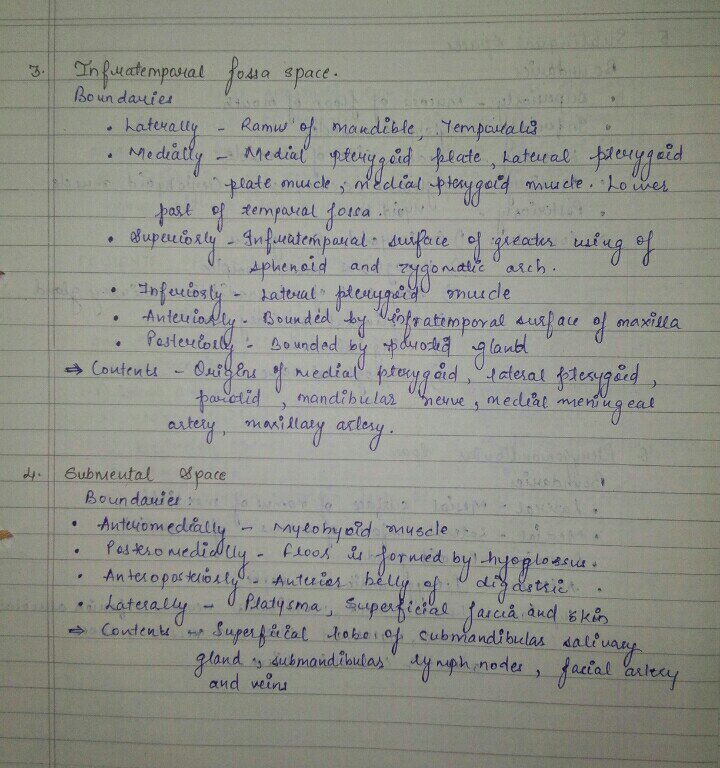 3. Infratemporal fossa space.
Boundaries
• Laterally - Ramus of mandible, Temporalis
• Medially - Medial pterygoid plate, Lateral pterygoid
plate muscle, medial pterygoid muscle. Lower
part of temporal fossa.
• Superiorly - Infratemporal surface of greater using of
sphenoid and zygomatic arch.
• Inferiorly - Lateral pterygoid muscle
• Anteriorly - Bounded by infratemporal surface of maxilla
• Posteriorly - Bounded by parotid gland
⇒ Contents - Origins of medial pterygoid, lateral pterygoid,
parotid, mandibular nerve, medial meningeal
artery, maxillary artery.
4. Submental Space
Boundaries
• Anteromedially - Mylohyoid muscle
• Posteromedially - Floor is formed by hyoglossus.
• Anteroposteriorly - Anterior belly of digastric
• Laterally - Platysma, Superficial fascia and skin
⇒ Contents - Superficial lobe of submandibular salivary
gland, submandibular lymph nodes, facial artery
and veins